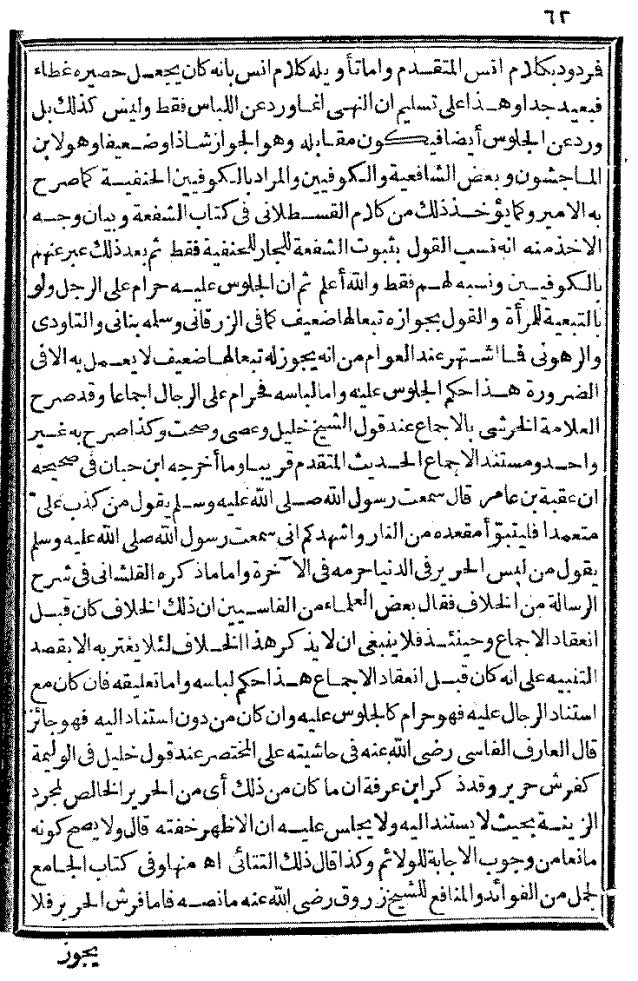 ٦٢
فردود بكلام انس المتقدم واما تأويله كلام انس بانه كان يجعل حصيره غطاء
فبعيد جدا وهذا على تسليم ان النهى انما ورد عن اللباس فقط وليس كذلك بل
ورد عن الجلوس أيضا فيكون مقابله وهو الجواز شاذا وضعيفا وهو لابن
الماجشون وبعض الشافعية والكوفيين والمراد بالكوفيين الحنفية كما صرح
به الامير وكما يؤخذ ذلك من كلام القسطلانى فى كتاب الشفعة وبيان وجه
الاخذ منه انه نسب القول بثبوت الشفعة للجار للحنفية فقط ثم بعد ذلك عبر عنهم
بالكوفيين ونسبه لهم فقط والله أعلم ثم ان الجلوس عليه حرام على الرجل ولو
بالتبعية للمرأة والقول بجوازه تبعا لها ضعيف كما فى الزرقانى وسلمه بنانى والتاودى
والرهونى فما اشتهر عند العوام من انه يجوز له تبعا لها ضعيف لا يعمل به الا فى
الضرورة هذا حكم الجلوس عليه واما لباسه فحرام على الرجال اجماعا وقد صرح
العلامة الخرشى بالاجماع عند قول الشيخ خليل وعصى وصحت وكذا صرح به غير
واحد ومستند الاجماع الحديث المتقدم قريبا وما أخرجه ابن حبان فى صحيحه
ان عقبة بن عامر قال سمعت رسول الله صلى الله عليه وسلم يقول من كذب علىّ
متعمدا فليتبوّأ مقعده من النار واشهدكم انى سمعت رسول الله صلى الله عليه وسلم
يقول من لبس الحرير فى الدنيا حرمه فى الآخرة واما ما ذكره القلشانى فى شرح
الرسالة من الخلاف فقال بعض العلماء من الفاسيين ان ذلك الخلاف كان قبل
انعقاد الاجماع وحينئذ فلا ينبغى ان لا يذكر هذا الخلاف لئلا يغتر به الا بقصد
التنبيه على انه كان قبل انعقاد الاجماع هذا حكم لباسه واما تعليقه فان كان مع
استناد الرجال عليه فهو حرام كالجلوس عليه وان كان من دون استناد اليه فهو جائز
قال العارف الفاسى رضى الله عنه فى حاشيته على المختصر عند قول خليل فى الوليمة
كفرش حرير وقد ذكر ابن عرفة ان ما كان من ذلك أى من الحرير الخالص لمجرد
الزينة بحيث لا يستند اليه ولا يجلس عليه ان الاظهر خفته قال ولا يصح كونه
مانعا من وجوب الاجابة للولائم وكذا قال ذلك التتائى اه منها وفى كتاب الجامع
لجمل من الفوائد والمنافع للشيخ زروق رضى الله عنه ما نصه فاما فرش الحرير فلا
يجوز